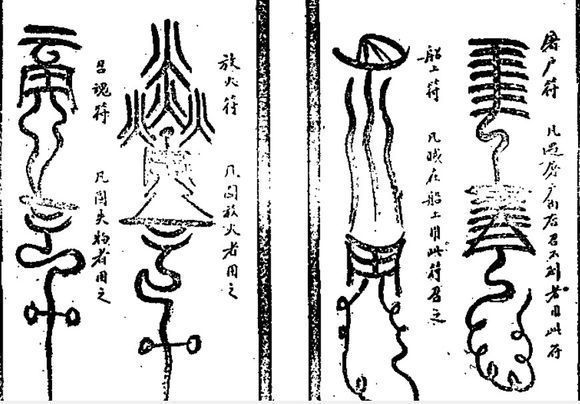 屠户符 凡遇屠户向左召不到者用此符
船上符 凡贼在船上用此符召之
放火符 凡問放火者用之
召魂符 凡問失物者用之